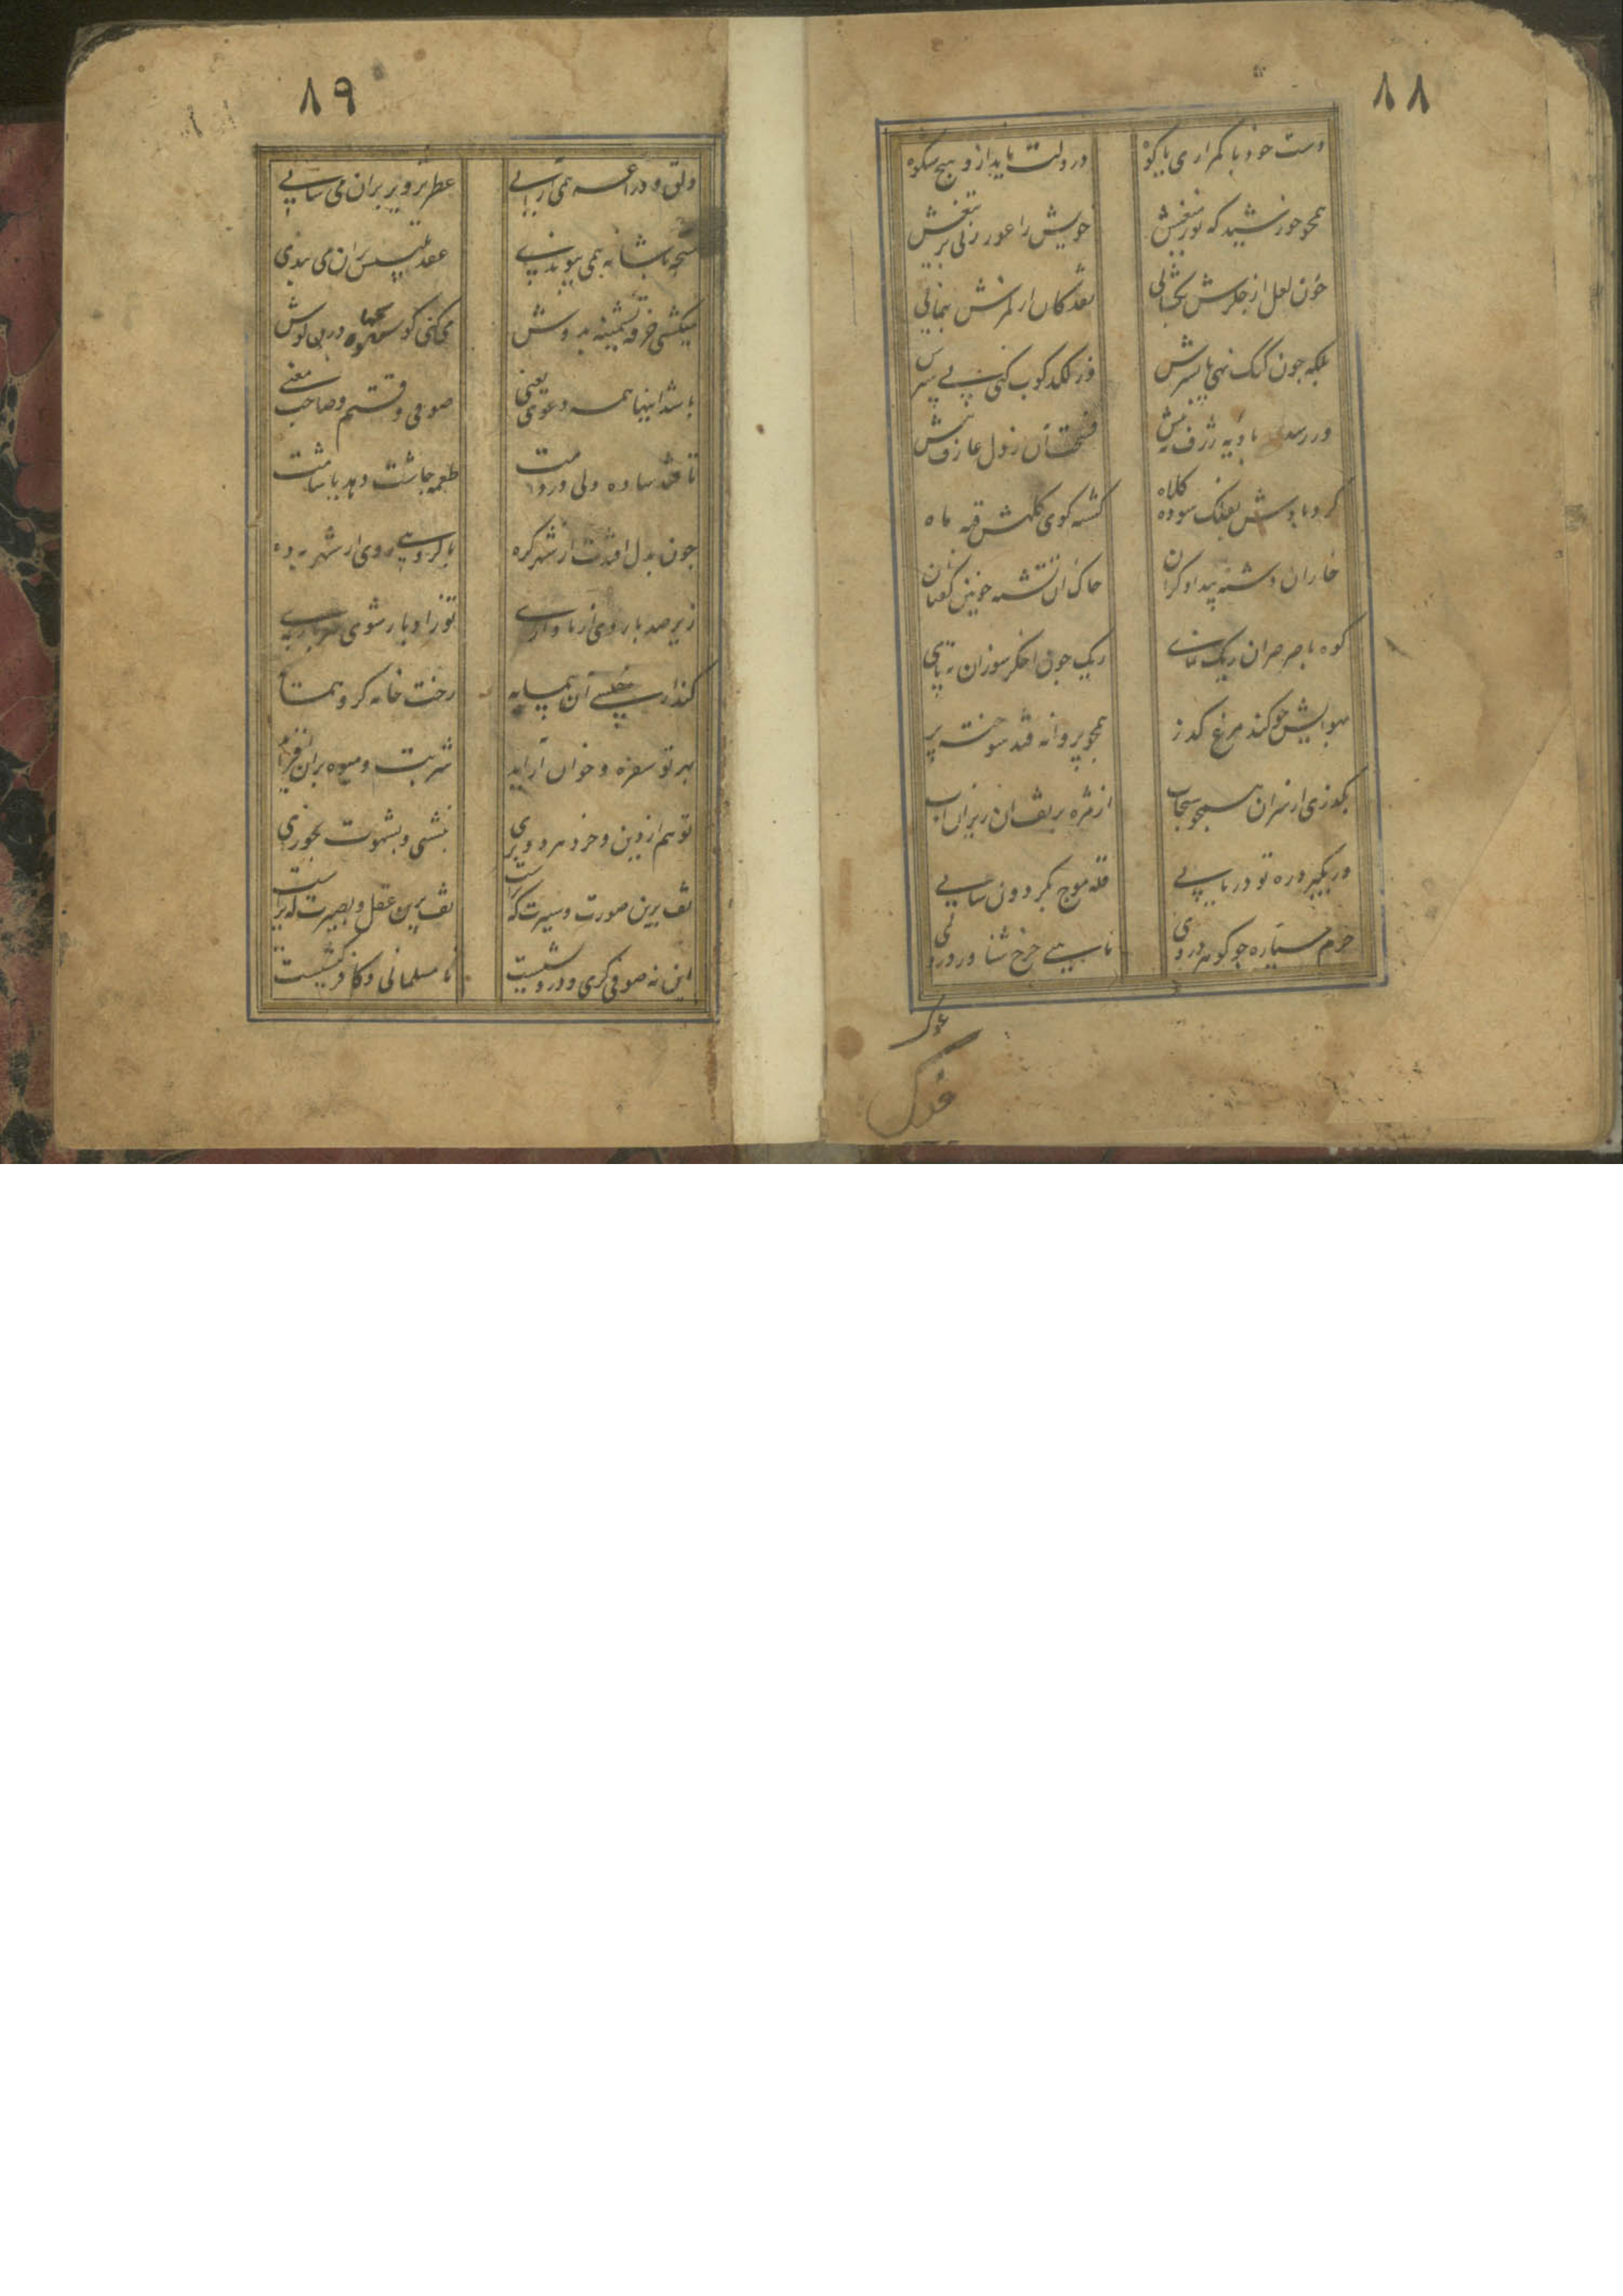 ۸۸
دست خود با کمر آری با کوه
در دلت ناید ازو هیچ شکوه
همچو خورشید که نور تیغش
خویش را غور زنی بر تیغش
خون لعل از جگرش بگشائی
نقد کان از کمرش بنمائی
بلکه چون کبک نهی پا بسرش
در لگد کوب کنی پی سپرش
ور رسد بادیه ژرف به پیش
فسحت آن ز دل عارف بیش
گرد بادش بفلک سوده کلاه
گشته گوی کلهش قبه ماه
خاران دشنه بیدادگران
خاک آن تشنه خونین کفنان
کوه با صرصر آن ریگ نمای
ریگ چون اخگر سوزان ته پای
بهوایش چو کند مرغ گذر
همچو پروانه فتد سوخته پر
بگذری از سر آن همچو سحاب
از مژه بر تف آن ریزان آب
ور بگیرد ره تو دریایی
قله موج بگردون سایی
جرم سیاره چو گوهر در وی
ماهیی چرخ شناور در وی
۸۹
دلق و دراعه همی آرایی
عطر تزویر بران می سایی
سبحه با شانه همی پیوندی
عقد تلبیس بران می بندی
میکشی خرقه پشمینه بدوش
می کنی گوش بهر در پی گوش
باشد اینها همه دعوی یعنی
صوفی وقتم و صاحب معنی
تا فتد ساده دلی در دامت
طعمه چاشت دهد یا شامت
چون بدل افتدت از شهر گره
با گروهی روی از شهر به ده
زیر صد بار روی از ناداری
تو زاد بار شوی سرباری
گذارد بخسی آن همسایه
رخت خانه گرو همسایه
بهر تو سفره و خوان آراید
شربت و میوه بران افزاید
تو هم از دین و خرد هر دو بری
بنشینی و بشهوت بخوری
تف برین صورت و سیرت که تراست
تف برین عقل و بصیرت که تراست
این نه صوفی گری و درویشیست
نامسلمانی و کافر کیشیست